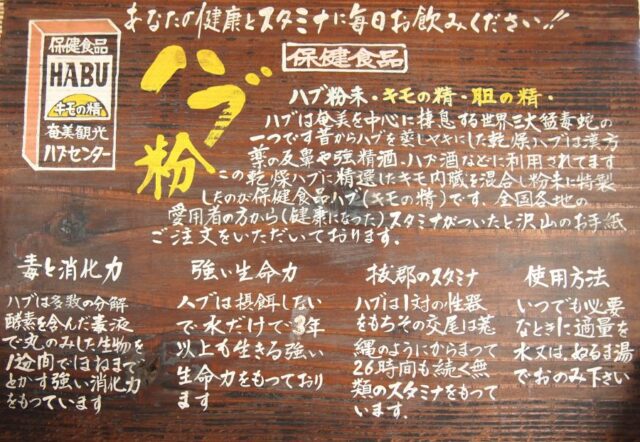 あなたの健康とスタミナに毎日お飲みください!!
保健食品
HABU
キモの精
奄美観光
ハブセンター
ハブ粉
保健食品
ハブ粉末・キモの精・胆の精・
ハブは奄美を中心に棲息する世界三大猛毒蛇の
一つです昔からハブを蒸しヤキにした乾燥ハブは漢方
薬の反鼻や強精酒、ハブ酒などに利用されてます
この乾燥ハブに精選したキモ内蔵を混合し粉末に特製
したのが保健食品ハブ(キモの精)です、全国各地の
愛用者の方から(健康になった)スタミナがついたと沢山のお手紙
ご注文をいただいております。
毒と消化力
ハブは多数の分解
酵素を含んだ毒液
で丸のみした生物を
1週間でほねまで
とかす強い消化力
をもっています
強い生命力
ハブは摂餌しない
で水だけで3年
以上も生きる強い
生命力をもっており
ます
抜群のスタミナ
ハブは1対の性器
をもちその交尾は
縄のようにからまって
26時間も続く無
類のスタミナをもって
います.
使用方法
いつでも必要
なときに適量を
水又は、ぬるま湯
でおのみ下さい